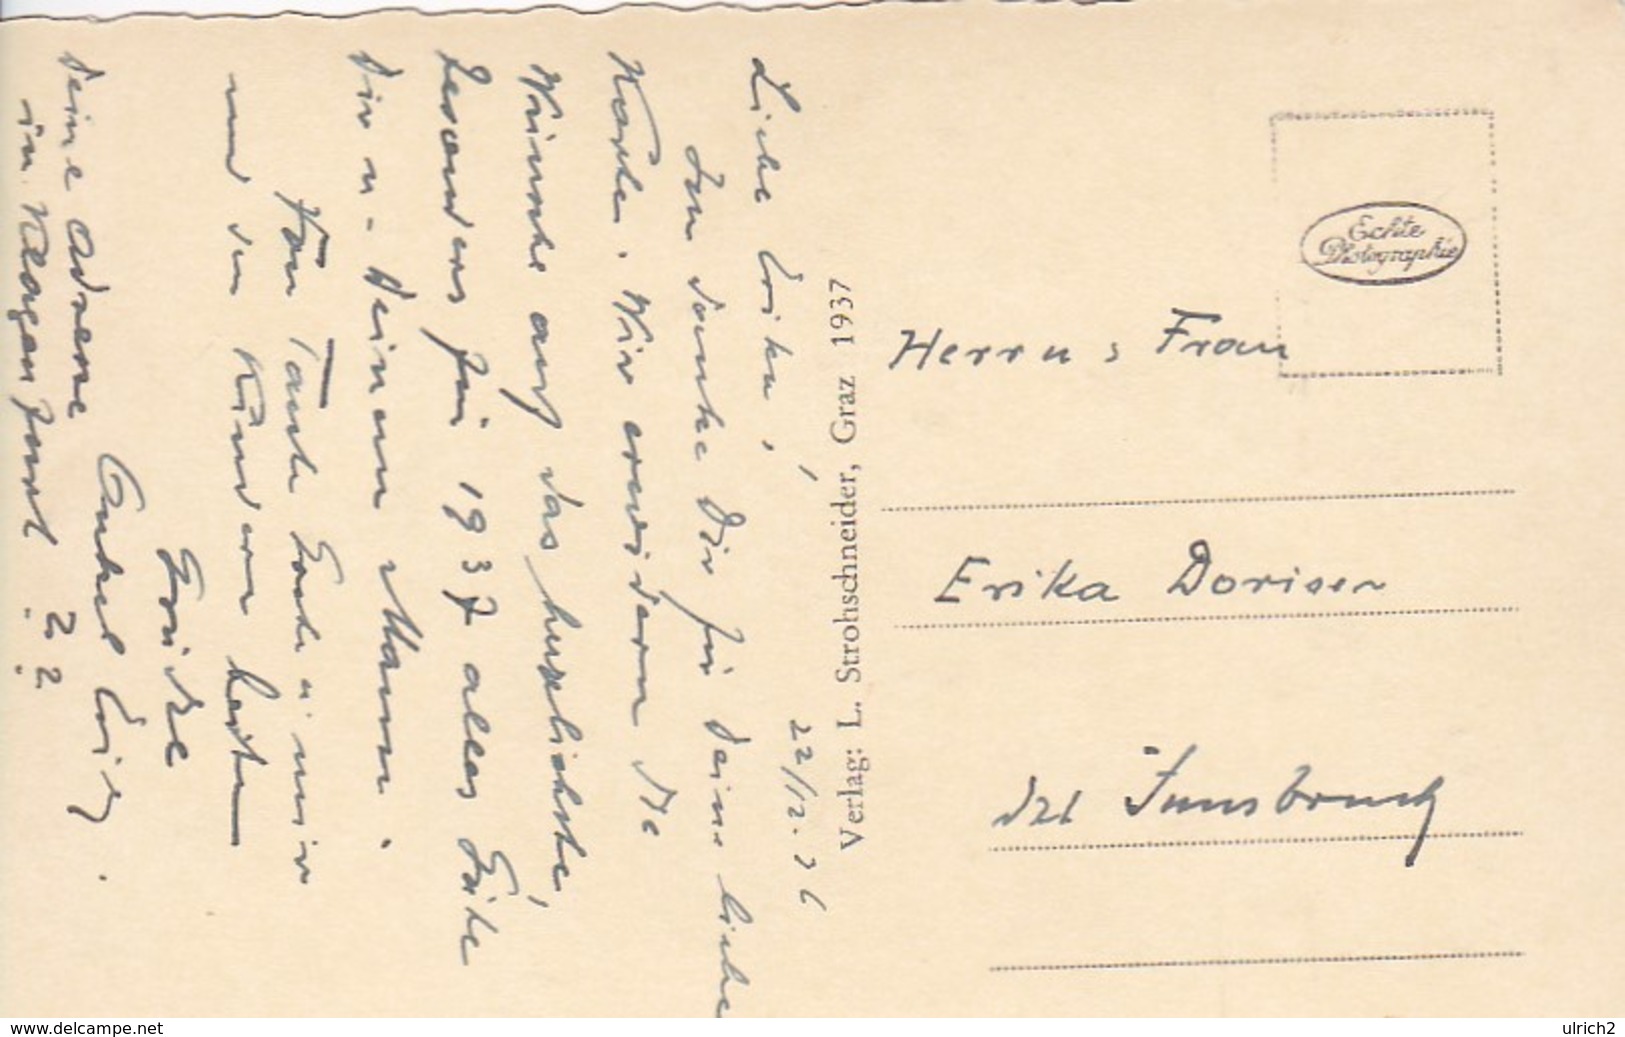 22/12. 36
Liebe Erika,
Ich danke Dir für Deine liebe
Karte. Wir erwidern die
Wünsche auf das herzlichste,
besonders für 1937 alles Gute
Dir u. Deinem Mann.
Von Tante Gerte u. mir
und den Kindern besten
Grüße
Onkel
Deine Adresse
in Klagenfurt ??
Verlag: L. Strohschneider, Graz 1937
Echte
Photographie
Herrn u. Frau
Erika
dzt Innsbruck
www.delcampe.net
ulrich2